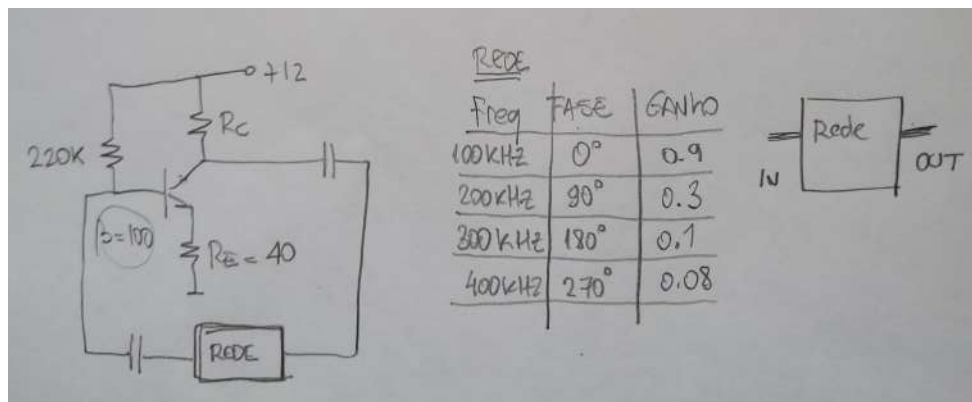 +12
RC
220K
β=100
RE = 40
REDE
REDE
Freq FASE GANHO
100KHZ 0° 0.9
200KHZ 90° 0.3
300KHZ 180° 0.1
400KHZ 270° 0.08
Rede
IN
OUT